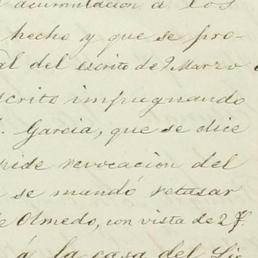 acumulacion á los
hecho y que se pro-
al del escrito de 9 Marzo
scrito impugnando
Garcia, que se dice
pide revocacion del
se mandó retasar
de Olmedo, con vista de 2 f.
á la casa del Sic